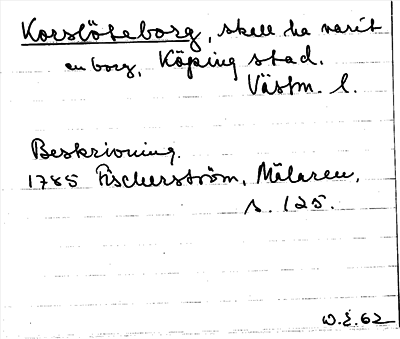 Korslöteborg, skall ha varit
en borg, Köping stad.
Västm. l.
Beskrivning.
1785 Fischerström, Mälaren,
s. 125.
W.E. 62